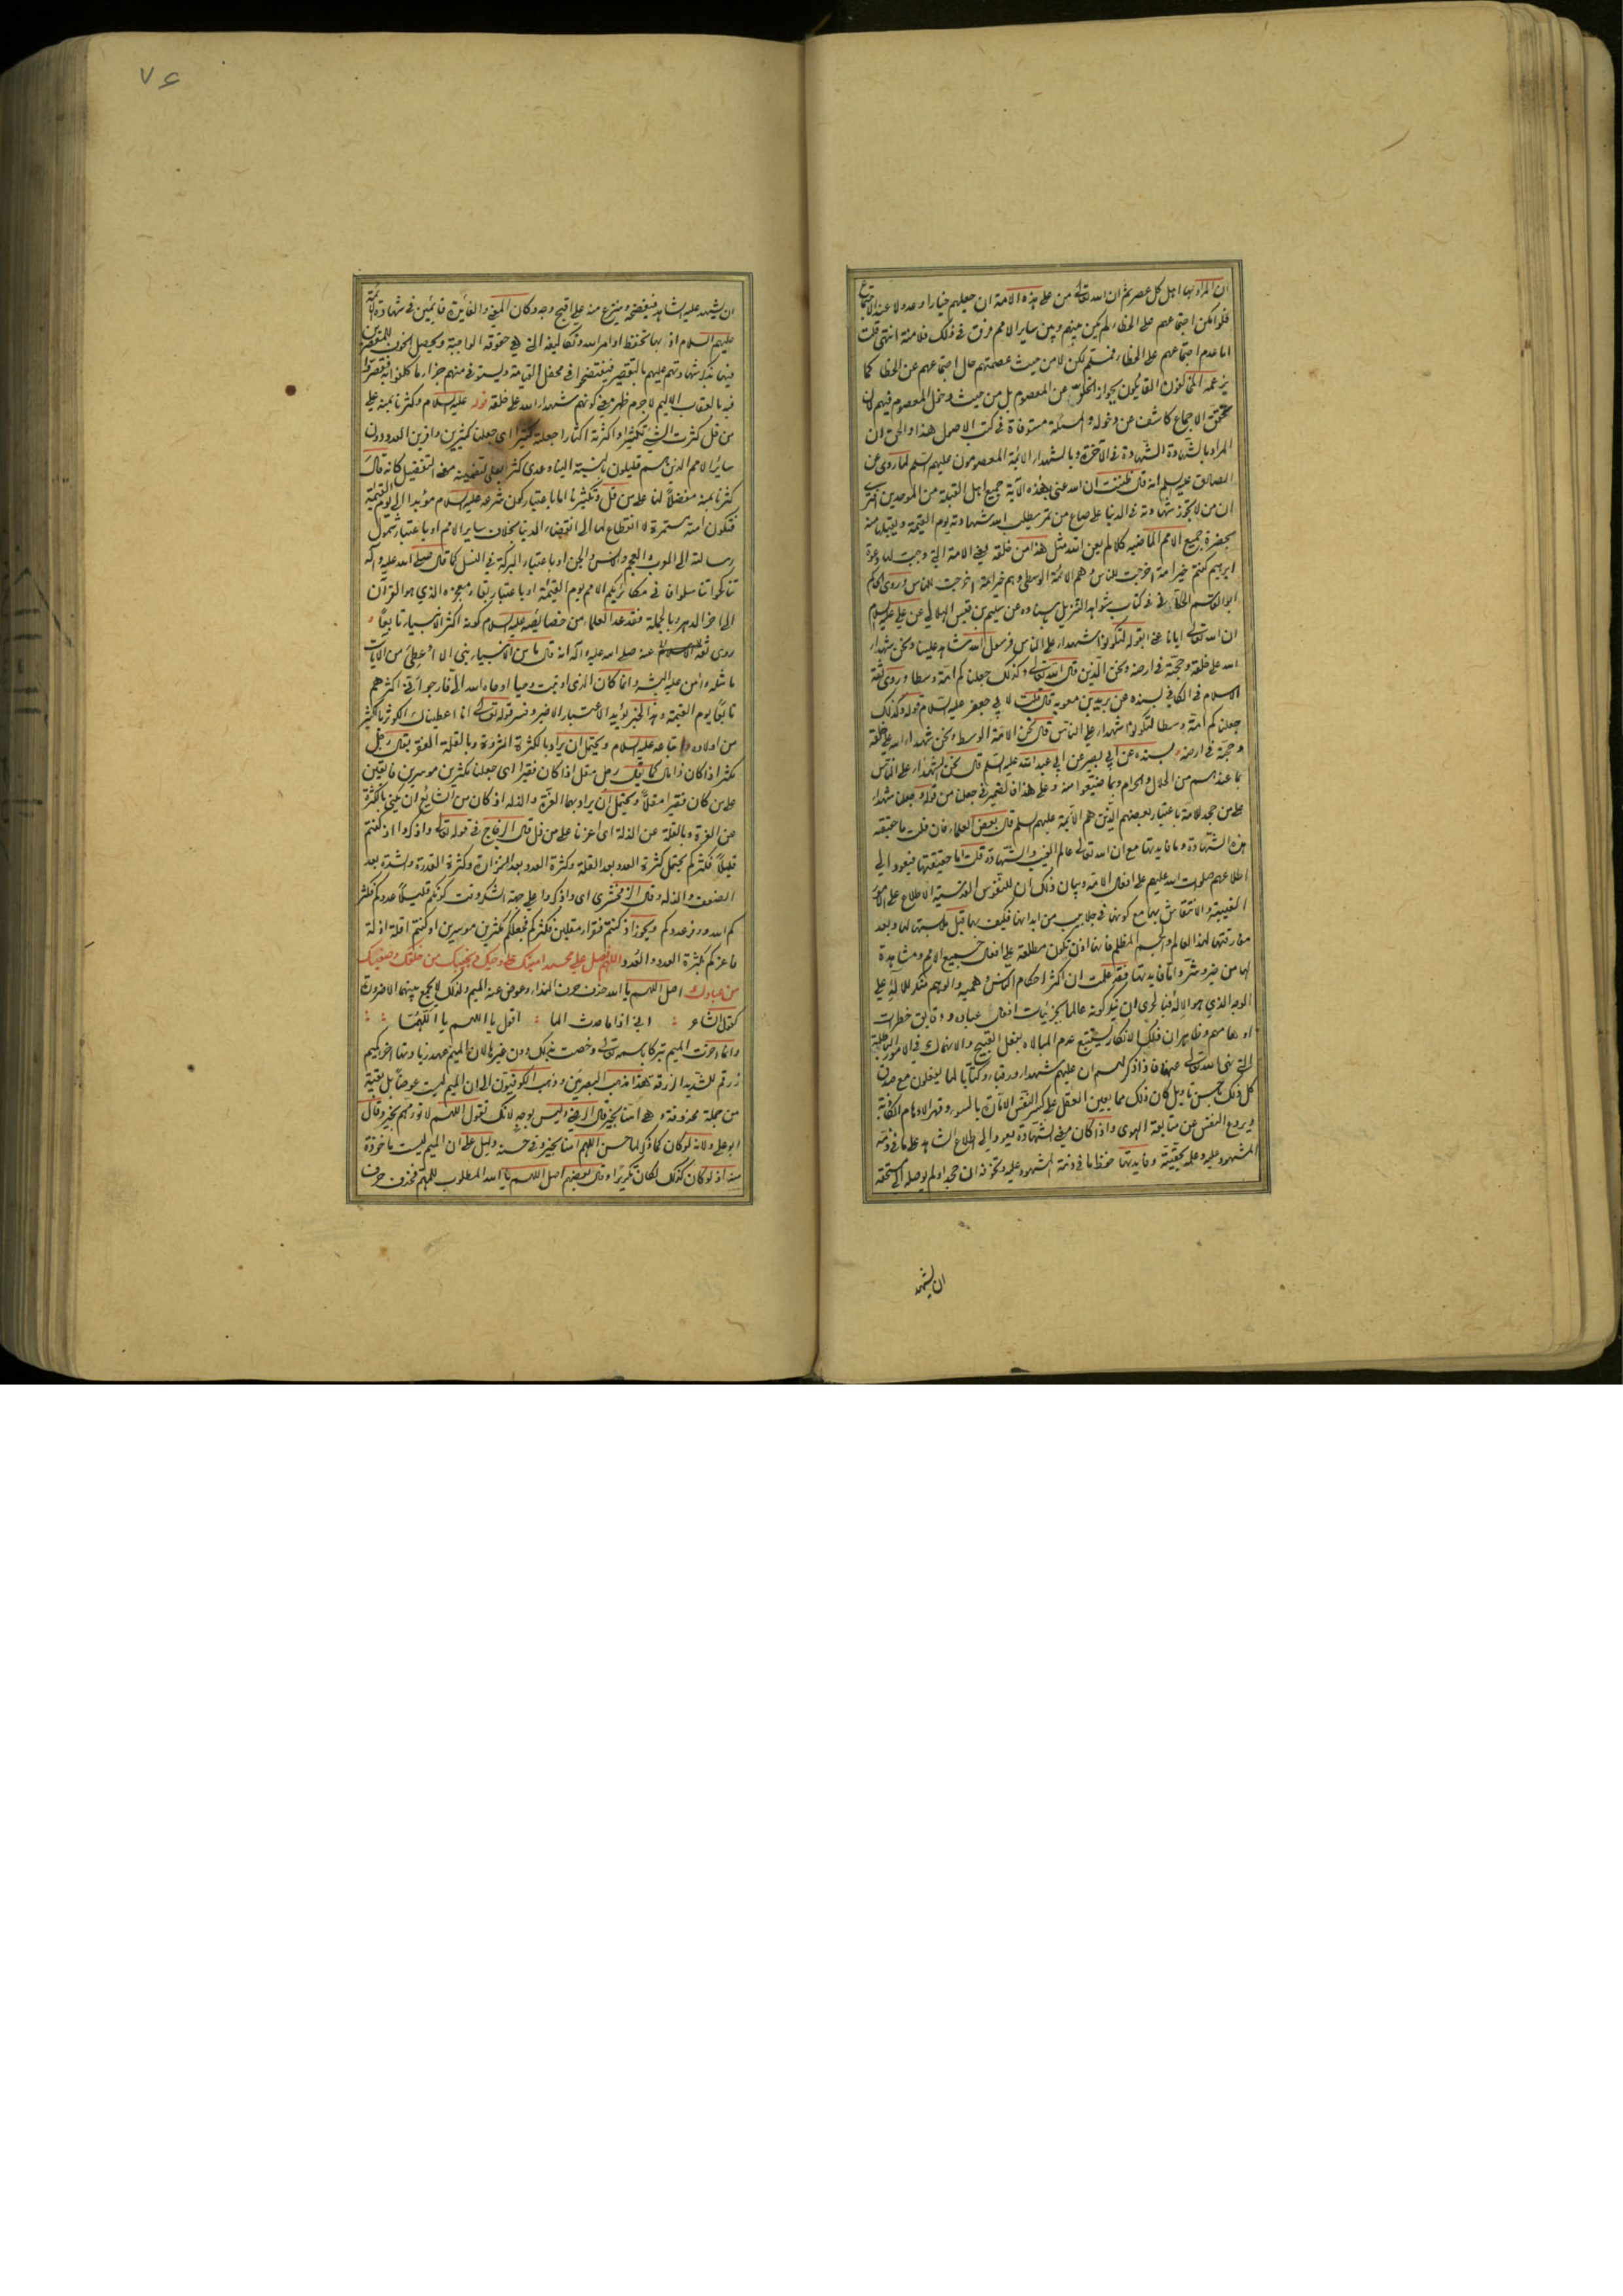 ان المراد بها اهل كل عصر ثم ان الله تعالى من على هذه الامة ان جعلهم خيارا وعدولا عند الاجتماع
فلو امكن اجتماعهم على الخطاء لم يكن بينهم وبين ساير الامم فرق في ذلك فلا منة انتهى قلت
اما عدم اجتماعهم على الخطاء فمسلم لكن لا من حيث عصمتهم حال اجتماعهم عن الخطا كما
يزعمه المخالفون القايلون بجواز الخلو عن المعصوم بل من حيث دخول المعصوم فيهم لان
تحقق الاجماع كاشف عن دخوله والمسئلة مستوفاة في كتب الاصول هذا والحق ان
المراد بالشهادة الشهادة في الآخرة وبالشهداء الائمة المعصومون عليهم السلم لما روى عن
الصادق عليه السلم انه قال ظننت ان الله عنى بهذه الآية جميع اهل القبلة من الموحدين افترى
ان من لا تجوز شهادته في الدنيا على صاع من تمر يطلب الله شهادته يوم القيمة ويقبلها منه
بحضرة جميع الامم الماضيه كلا لم يعن الله مثل هذا من خلقه يعني الامة التي وجبت لها دعوة
ابرهيم كنتم خير امة اخرجت للناس وهم الائمة الوسطى وهم خير امة اخرجت للناس وروى الحاكم
ابو القاسم الحسكاني في كتاب شواهد التنزيل باسناده عن سليم بن قيس الهلالي عن علي عليه السلام
ان الله تعالى ايانا عنى بقوله لتكونوا شهداء على الناس فرسول الله شاهد علينا ونحن شهداء
الله على خلقه وحجته في ارضه ونحن الذين قال الله تعالى وكذلك جعلناكم امة وسطا وروى ثقة
الاسلام في الكافي بسنده عن بريد بن معوية قال قلت لابي جعفر عليه السلام قوله وكذلك
جعلناكم امة وسطا لتكونوا شهداء على الناس قال نحن الامة الوسط ونحن شهداء الله على خلقه
وحجته في ارضه وبسنده عن ابي بصير عن ابي عبد الله عليه السلم قال نحن الشهداء على الناس
بما عندهم من الحلال والحرام وبما ضيعوا منه وعلى هذا فالضمير في جعلنا من قوله وجعلنا شهداء
على من جحد للامة باعتبار بعضهم الذين هم الائمة عليهم السلم قال بعض العلماء فان قلت ما حقيقة
هذه الشهادة وما فايدتها مع ان الله تعالى عالم الغيب والشهادة قلت اما حقيقتها فيعود الى
اطلاعهم صلوات الله عليهم على افعال الامة وبيان ذلك ان للنفوس القدسية الاطلاع على الامور
الغيبية والانتقاش بها مع كونها في جلابيب من ابدانها فكيف بها قبل ملابستها لها وبعد
مفارقتها لهذا العالم والجسم المظلم فانها اذن تكون مطلعة على افعال جميع الامم ومشاهدة
لها من خير وشر واما فايدتها فقد علمت ان اكثر احكام الناس وهمية والوهم منكر للاله على
الوجه الذي هو الاله فبالحري ان ينكر كونه عالما بجزئيات افعال عباده ودقايق خطرات
اوهامهم وظاهر ان ذلك الانكار يستتبع عدم المبالاة بفعل القبيح والانهماك في الامور الباطلة
التي نهى الله تعالى عنها فاذا ذكر لهم ان عليهم شهداء ورقباء وكتابا لما يفعلون مع صدق
كل ذلك باحسن تاويل كان ذلك مما يعين العقل على كسر النفس الامارة بالسوء وقهر الاوهام الكاذبة
ويردع النفس عن متابعة الهوى واذا كان معنى الشهادة يعود الى اطلاع الشاهد على ما في ذمة
المشهود عليه وعلمه بحقيقته وفايدتها حفظ ما في ذمة المشهود عليه وتخوفه ان جحد او لم يوصله الى مستحقه
ان يشهد
٧٤
ان يشهد عليه الشاهد فيفضحه وينتزع منه على اقبح وجه وكان المعنى والفايدة قائمين في شهادة الائمة
عليهم السلام اذ بها تحفظ اوامر الله وتكاليفه التي هي حقوقه الواجبة ويحصل الخوف للمقصرين
فيها بذكر شهادتهم عليهم بالتقصير فيفتضحوا في محفل القيامة ويستوفى منهم جزاء ما كلفوا به فقصروا
فيه بالعقاب الاليم لا جرم ظهر معنى كونهم شهداء الله على خلقه قوله عليه السلام وكثرنا بمنه على
من قل كثرت الشيء تكثيرا واكثرته اكثارا جعلته كثيرا اي جعلنا كثيرين وافرين العدد دون
ساير الامم الذين هم قليلون بالنسبة الينا وعدى كثر بعلى لتضمينه معنى التفضيل كانه قال
كثرنا بمنه مفضلا لنا على من قل وتكثيرنا اما باعتبار كون شرعه عليه السلام مؤبدا الى يوم القيمة
فتكون امته مستمرة لا انقطاع لها الى انقضاء الدنيا بخلاف ساير الامم او باعتبار شمول
رسالته الى العرب والعجم والانس والجن او باعتبار البركة في النسل كما قال صلى الله عليه وآله
تناكحوا تناسلوا فاني مكاثر بكم الامم يوم القيمة او باعتبار بقاء معجزه الذي هو القرآن
الى اخر الدهر وبالجملة فقد عد العلماء من خصائصه عليه السلام كونه اكثر الانبياء تابعا و
روى ثقة الاسلام عنه صلى الله عليه وآله انه قال ما من الانبياء نبي الا اوعطي من الآيات
ما مثله أمن عليه البشر وانما كان الذي اوتيت وحيا اوحاه الله الي فارجو اني اكثرهم
تابعا يوم القيمة وهذا الخبر يؤيد الاعتبار الاخير وفسر قوله تعالى انا اعطيناك الكوثر بالكثير
من اولاده واتباعه عليه السلام ويحتمل ان يراد بالكثرة الثروة وبالقلة الفقر يقال رجل
مكثر اذا كان ذا مال كما يقال رجل مقل اذا كان فقيرا اي جعلنا مكثرين موسرين فايقين
على من كان فقيرا مقلا ويحتمل ان يراد بهما العزة والذلة اذ كان من الشائع ان يكنى بالكثرة
عن العزة وبالقلة عن الذلة اي اعزنا على من ذل قال الزجاج في قوله تعالى واذكروا اذ كنتم
قليلا فكثركم يحتمل كثرة العدد بعد القلة وكثرة العدد بعد النزارة وكثرة القدرة والشدة بعد
الضعف والذلة وقال الزمخشري اي واذكروا على جهة الشكر وقت كونكم قليلا عددكم فكثر
كم الله ووفر عددكم ويجوز اذ كنتم فقراء مقلين فكثركم فجعلكم مكثرين موسرين او كنتم اقلة اذلة
فاعزكم بكثرة العدد والعدد اللهم فصل على محمد امينك على وحيك ونجيبك من خلقك وصفيك
من عبادك اصل اللهم يا الله حذف حرف النداء وعوض عنه الميم ولذلك لا يجمع بينهما الا ضرورة
كقول الشاعر اني اذا ما حدث الما اقول يا اللهم يا اللهما
وانما اخرت الميم تبركا باسمه تعالى وخصت بذلك دون غيرها لان الميم عهد زيادتها اخرا كميم
زرقم للشديد الزرقة هذا مذهب البصريين وذهب الكوفيون الى ان الميم ليست عوضا بل بقية
من جملة محذوفة وهي امنا بخير قال الرضي وليس بوجه لانك تقول اللهم لا تؤمهم بخير وقال
ابو علي ولانه لو كان كما ذكر لما حسن اللهم امنا بخير وفي حسنه دليل على ان الميم ليست ماخوذة
منه اذ لو كان كذلك لكان تكريرا وقال بعضهم اصل اللهم يا الله المطلوب للمهم فحذف حرف